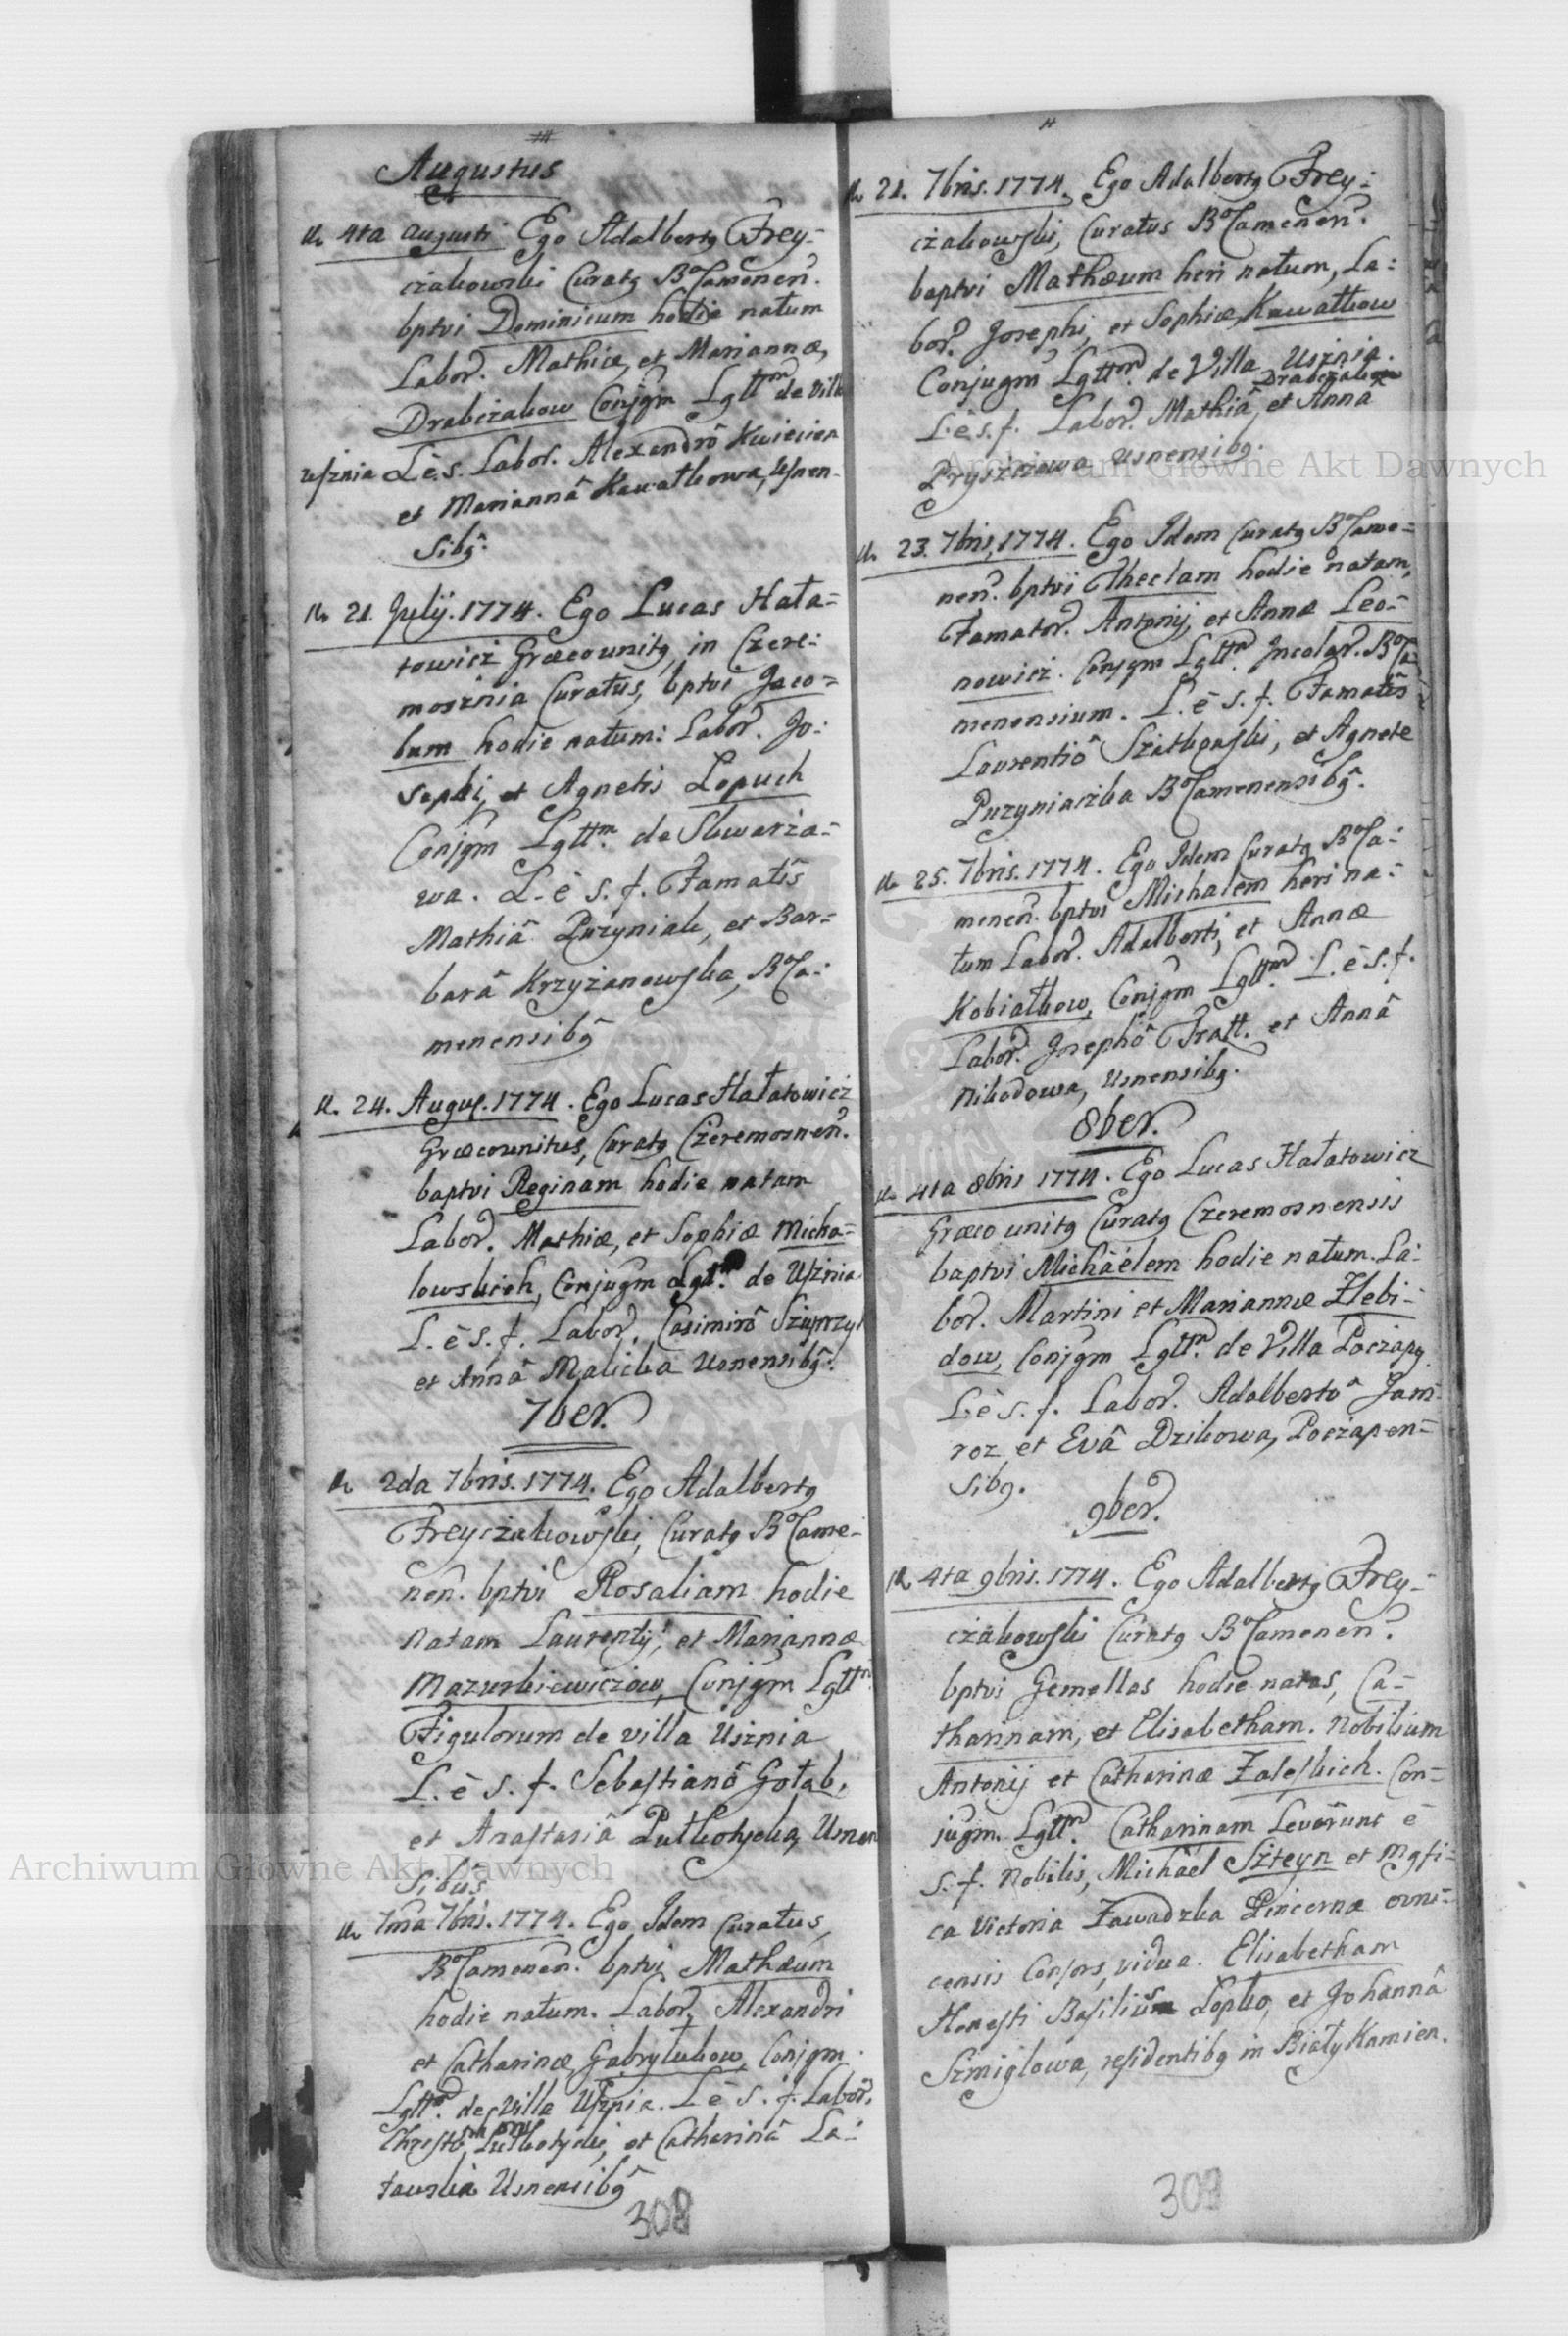 Augustus
4ta Augusti Ego Adalbertq Frey-
czakowski Curatq Bo Camenen.
bptvi Dominicum hodie natum
Labor. Mathiæ, et Mariannæ,
Drabczakow Conjgm Lgttm de Villa
Usznia L. è s. Labor. Alexandrô Kwiecien
et Mariannâ Kawałkowa, Usnen-
sibq.
21. Julij. 1774. Ego Lucas Hała-
towicz Græcounitq, in Czere-
mosznia Curatus, bptvi Jaco-
bum hodie natum: Labor. Jo-
sephi, et Agnetis Lopuch
Conjgm Lgttm. de Skwarza-
wa. L. è s. f. Famatis
Mathiâ Puzyniak, et Bar-
barâ Krzyżanowska, Bo Ca-
menensibq
24. Augus. 1774. Ego Lucas Hałatowicz
Græcounitus, Curatq Czeremosnen.
baptvi Reginam hodie natam
Labor. Mathiæ, et Sophiæ Micha-
lowskich, Conjugm Lgtt. de Usznia
L. è s. f. Labor. Casimirô
et Annâ Malicka Usnensibq.
7ber.
2da 7bris. 1774. Ego Adalbertq
Freyczakowski, Curatq Bo Came-
nen. bptvi Rosaliam hodie
natam Laurentij, et Mariannæ
Mazurkiewiczow, Conjgm Lgttm
Figulorum de villa Usznia
L. è s. f. Sebastianô Gołab,
et Anastasiâ Pułkotycka, Usnen
sibus
7ma 7bris. 1774. Ego Idem Curatus,
Bo Camenen. bptvi Mathæum
hodie natum. Labor. Alexandri
et Catharinæ Gabrylukow, Conjgm
Lgttm. de Villa Usznia. L è s. f. Labor.
et Catharinâ La-
tawska Usnensibq
308
21. 7bris. 1774. Ego Adalbertq Frey-
czakowski, Curatus Bo Camenen.
baptvi Mathæum heri natum, La-
bor. Josephi, et Sophiæ, Kawałkow
Conjugm Lgttm. de Villa Usznia.
Drabczakow
L. è s. f. Labor. Mathiâ, et Anna
Pryszczowa Usnensibq.
23. 7bris, 1774. Ego Idem Curatq Bo Came-
nen. bptvi Theclam hodie natam,
Famator. Antonij, et Annæ Leo-
nowicz. Conjgm Lgttm. Incolar. Bo Ca-
menensium. L. è s. f. Famatis
Laurentiô Sziatkowski, et Agnete
Puzyniaczka Bo Camenensibq.
25. 7bris. 1774. Ego Idem Curatq Bo Ca-
menen. bptvi Michalem heri na-
tum Labor. Adalberti, et Annæ
Kobiałkow, Conjgm Lgttm. L. è s. f.
Labor. Josephô Fratt. et Annâ
Nikodowa, Usnensibq.
8ber.
4ta 8bris 1774. Ego Lucas Hałatowicz
Græco unitq Curatq Czeremosnensis
baptvi Michäelem hodie natum. La-
bor. Martini et Mariannæ Zlebi-
dow, Conjgm Lgttm. de Villa Poczapy
L. è s. f. Labor. Adalbertô Jam-
roz, et Evâ Dzikowa, Poczapen-
sibq.
9ber.
4ta 9bris. 1774. Ego Adalbertq Frey-
czakowski Curatq Bo Camenen.
bptvi Gemellas hodie natas, Ca-
tharinam, et Elisabetham. Nobilium
Antonij et Catharinæ Zaleskich. Con-
jugm. Lgttm. Catharinam Levârunt è
s. f. Nobilis, Michäel Szteyn et Mgfi-
ca Victoria Zawadzka Pincernæ
censis Consors, vidua. Elisabetham
Honesti Basilius Lopko, et Johannâ
Szmiglowa, residentibq in Biały Kamien.
309
Archiwum Główne Akt Dawnych
Archiwum Główne Akt Dawnych